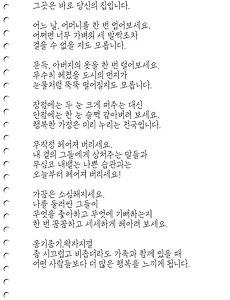 그곳은 바로 당신의 집입니다.
어느 날, 어머니를 한 번 업어보세요.
어쩌면 너무 가벼워 세 발짝조차
걸을 수 없을 지도 모릅니다.
문득, 아버지의 옷을 한 번 털어보세요.
무수히 헤쳤을 도시의 먼지가
눈물처럼 뚝뚝 떨어질지도 모릅니다.
장점에는 두 눈 크게 떠주는 대신
단점에는 한 눈 슬쩍 감아버려 보세요.
행복한 가정은 미리 누리는 천국입니다.
무작정 헤어져 버리세요.
내 곁의 그들에게 상처주는 말들과
무심코 내뱉는 나쁜 습관과는
오늘부터 헤어져 버리세요!
가끔은 소심해지세요.
나를 둘러싼 그들이
무엇을 좋아하고 무엇에 기뻐하는지
한 번 꼼꼼하고 세세하게 헤아려 보세요.
옹기종기,왁자지껄
좀 시끄럽고 비좁더라도 가족과 함께 있을 때
어떤 사람들보다 더 많은 행복을 느끼게 됩니다.